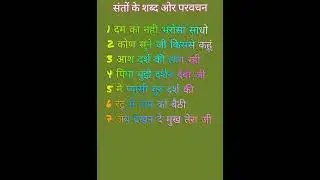 संतों के शब्द ओर परवचन
1 दम का नही भरोसा साधो
2 कोण सुने जी किससे कहूं
3 आश दर्श की लाग रही
4 पिया मुझे दर्शन देवा जी
5 मे प्यासी गुरु दर्श की
6 रटू मे नाम को बैठी
7 अब देखन दे मुख तेरा जी